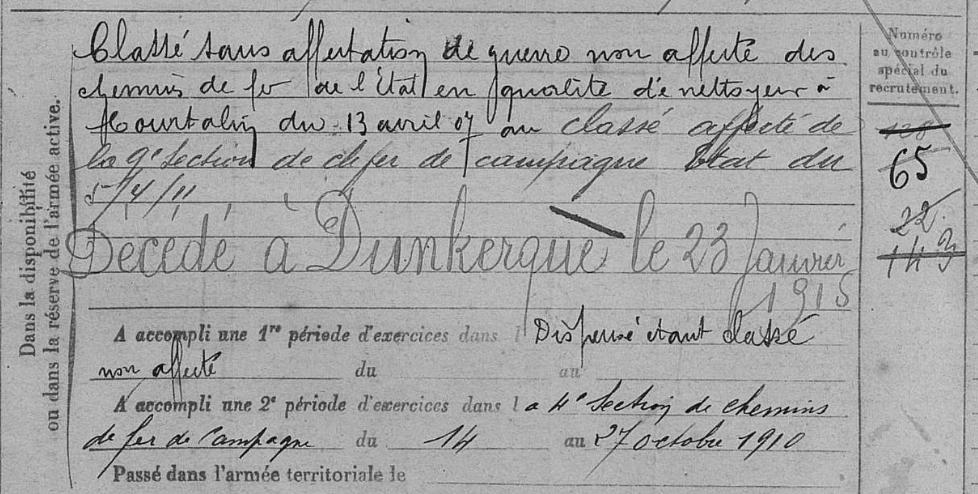 Classé sans affectation de guerre non affecté des
chemins de fer de l'État en qualité de nettoyeur à
du 13 avril 07 au classé affecté de
la 9e Section de ch. fer de campagne Etat du
5/4/11
Décédé à Dunkerque le 23 Janvier
1915
A accompli une 1re période d'exercices dans l Dispensé étant classé
non affecté du au
A accompli une 2e période d'exercices dans la 4e Section de chemins
de fer de Campagne du 14 au 27 octobre 1910
Passé dans l'armée territoriale le
Dans la disponibilité
ou dans la réserve de l'armée active.
Numéro
au contrôle
spécial du
recrutement.
65
22
143